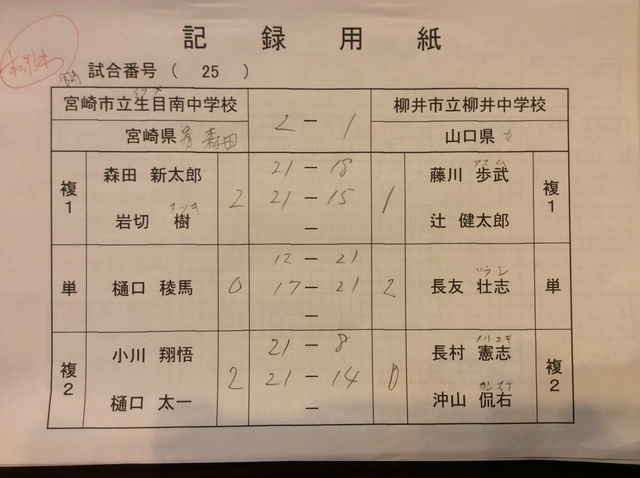 記録用紙
試合番号 ( 25 )
イキメ
宮崎市立生目南中学校 2 - 1 柳井市立柳井中学校
宮崎県 森田 山口県
複1 森田 新太郎 2 21 - 18 1 アユム 藤川 歩武 複1
21 - 15
イツキ
岩切 樹 - 辻 健太郎
単 樋口 稜馬 0 12 - 21 2 ツヨシ 長友 壮志 単
17 - 21
-
複2 小川 翔悟 2 21 - 8 0 ノリユキ 長村 憲志 複2
21 - 14 カンスケ
樋口 太一 - 沖山 侃右